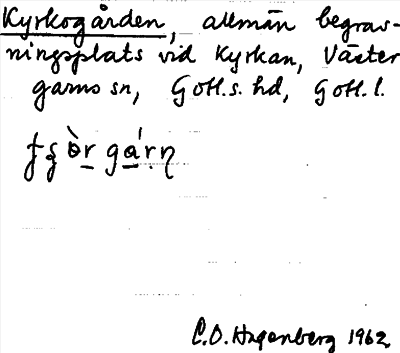 Kyrkogården, allmän begrav-
ningsplats vid Kyrkan, Väster
garns sn, Gotl. s. hd, Gotl. l.
C. O. Hagenberg 1962.